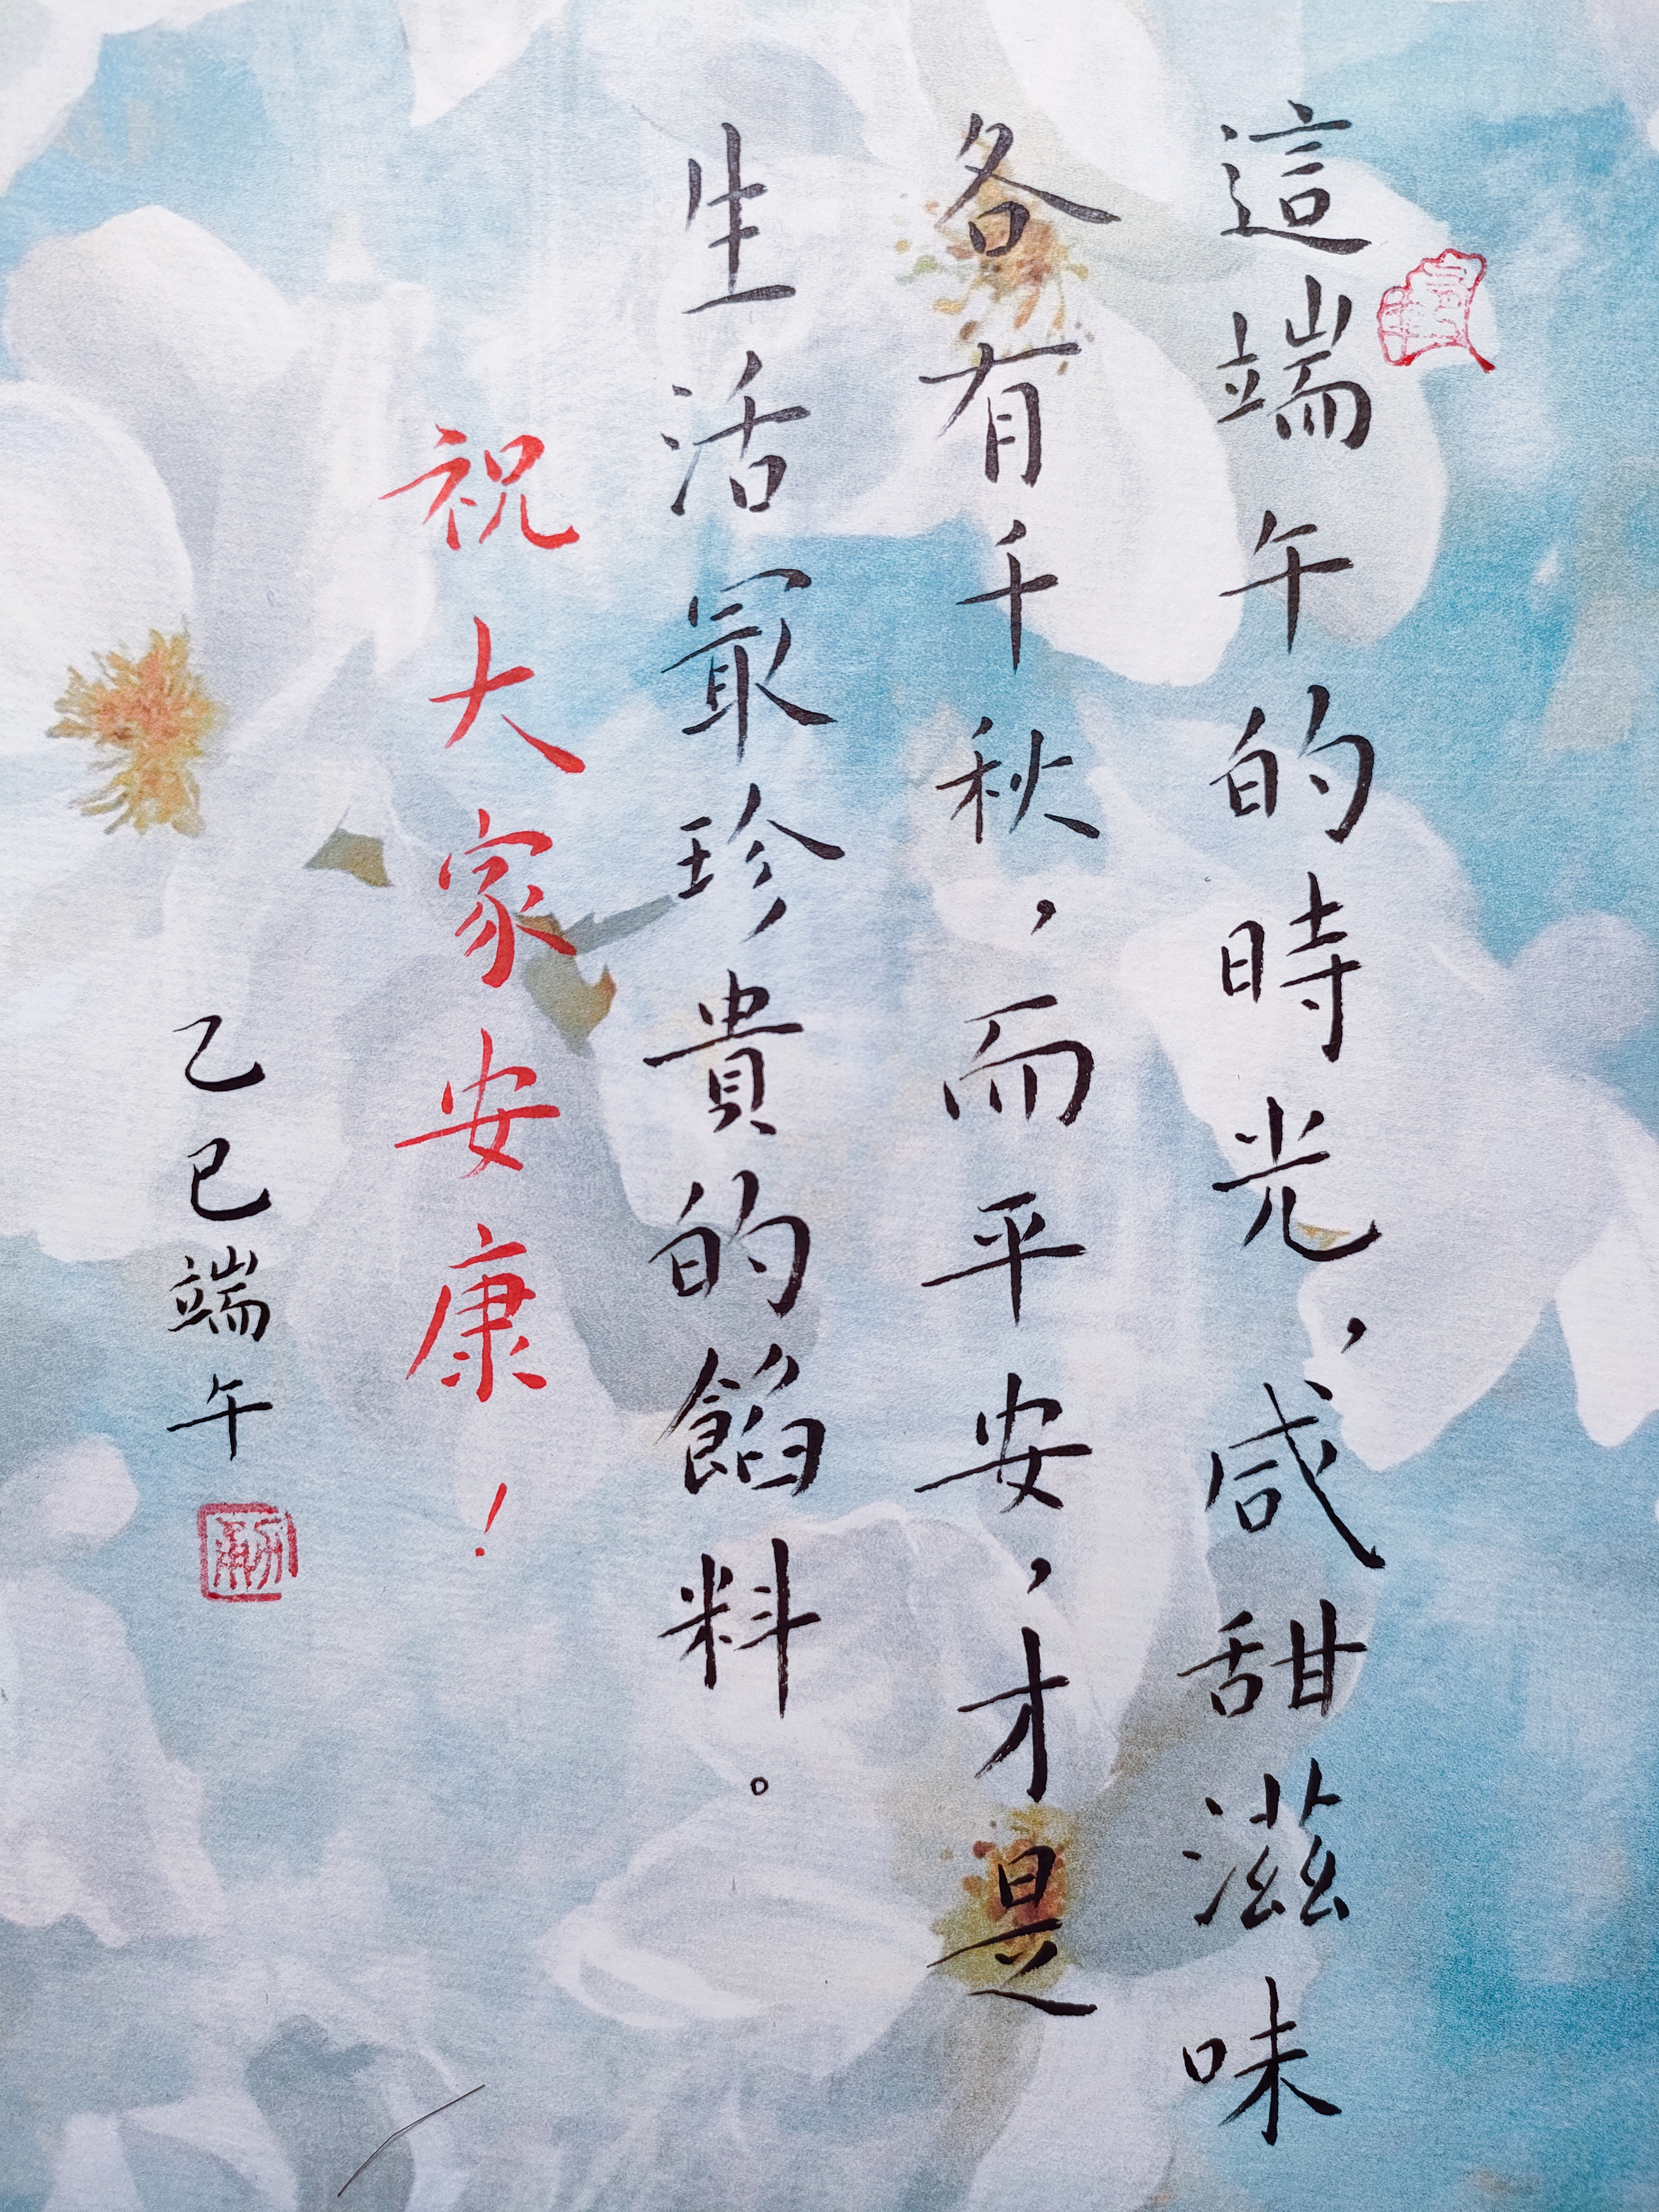 這端午的時光，咸甜滋味
各有千秋，而平安，才是
生活冣珍貴的餡料。
祝大家安康！
乙巳端午